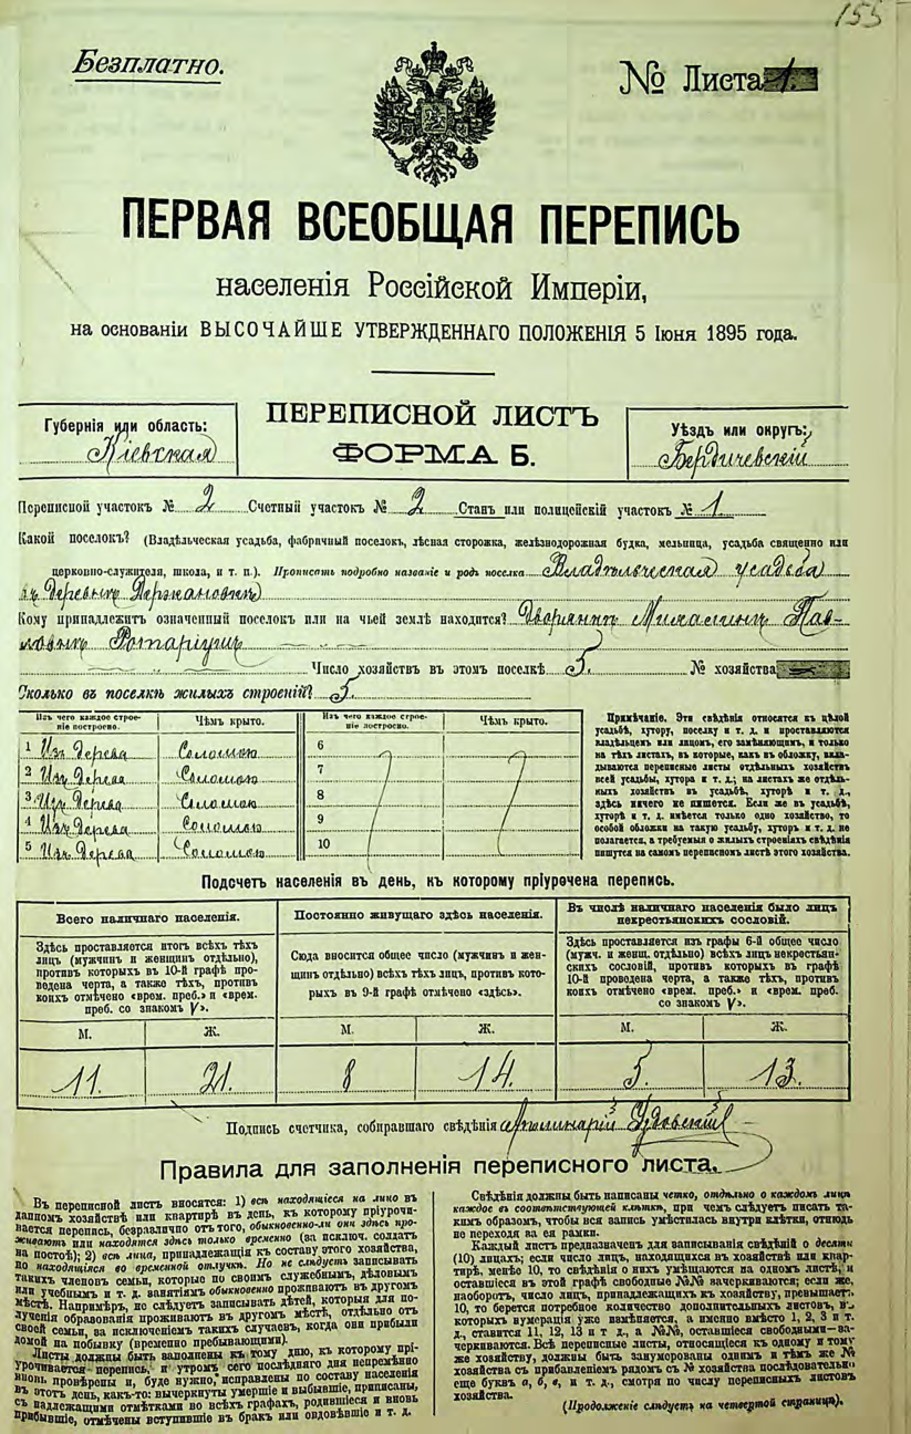 155
Безплатно.
№ Листа 1.
ПЕРВАЯ ВСЕОБЩАЯ ПЕРЕПИСЬ
населенія Россійской Имперіи,
на основаніи ВЫСОЧАЙШЕ УТВЕРЖДЕННАГО ПОЛОЖЕНІЯ 5 Іюня 1895 года.
ПЕРЕПИСНОЙ ЛИСТЪ
ФОРМА Б.
Губернія или область:
Кіевская
Уѣздъ или округъ:
Бердичевскій
Переписной участок № 2 Счетный участок № 2 Станъ или полицейскій участок № 1.
Какой поселокъ? (Владѣльческая усадьба, фабричный поселокъ, лѣсная сторожка, желѣзнодорожная будка, мельница, усадьба священно или
церковно-служителя, школа, и т. п.). Прописать подробно названіе и родъ поселка Владѣльческая усадьба
въ деревнѣ Держановкѣ
Кому принадлежитъ означенный поселокъ или на чьей землѣ находится? Дворянинъ
Число хозяйствъ въ этомъ поселкѣ 5. № хозяйства
Сколько въ поселкѣ жилыхъ строеній? 5.
Изъ чего каждое строе-
ніе построено.
Чѣмъ крыто.
Изъ чего каждое строе-
ніе построено.
Чѣмъ крыто.
1 Изъ дерева Соломою 6
2 Изъ дерева Соломою 7
3 Изъ дерева Соломою 8
4 Изъ дерева Соломою 9
5 Изъ дерева Соломою 10
Примѣчаніе. Эти свѣдѣнія относятся къ цѣлой
усадьбѣ, хутору, поселку и т. д. и проставляются
владѣльцем или лицомъ, его замѣняющимъ, и только
на тѣхъ листахъ, въ которые, какъ въ обложку, вкла-
дываются переписные листы отдѣльныхъ хозяйствъ
всей усадьбы, хутора и т. д.; на листахъ же отдѣль-
ныхъ хозяйствъ въ усадьбѣ, хуторѣ и т. д.,
здѣсь ничего не пишется. Если же въ усадьбѣ,
хуторѣ и т. д. имѣется только одно хозяйство, то
особой обложки на такую усадьбу, хуторъ и т. д. не
полагается, а требуемыя о жилыхъ строеніяхъ свѣдѣнія
пишутся на самомъ переписномъ листѣ этого хозяйства.
Подсчетъ населенія въ день, къ которому пріурочена перепись.
Всего наличнаго населенія.
Здѣсь проставляется итогъ всѣхъ тѣхъ
лицъ (мужчинъ и женщинъ отдѣльно),
противъ которыхъ въ 10-й графѣ про-
ведена черта, а также тѣхъ, противъ
коихъ отмѣчено «врем. преб.» и «врем.
преб. со знакомъ V».
Постоянно живущаго здѣсь населенія.
Сюда вносится общее число (мужчинъ и жен-
щинъ отдѣльно) всѣхъ тѣхъ лицъ, противъ кото-
рыхъ въ 9-й графѣ отмѣчено «здѣсь».
Въ числѣ наличнаго населенія было лицъ
некрестьянскихъ сословій.
Здѣсь проставляется изъ графы 6-й общее число
(мужч. и женщ. отдѣльно) всѣхъ лицъ некрестьян-
скихъ сословій, противъ которыхъ въ графѣ
10-й проведена черта, а также тѣхъ, противъ
коихъ отмѣчено «врем. преб.» и «врем. преб.
со знакомъ V».
М. Ж. М. Ж. М. Ж.
11. 21. 8 14. 5. 13.
Подпись счетчика, собиравшаго свѣдѣнія Аполинарій
Правила для заполненія переписного листа.
Въ переписной листъ вносятся: 1) всѣ находящіеся на лицо въ
данномъ хозяйствѣ или квартирѣ въ день, къ которому пріурочи-
вается перепись, безразлично отъ того, обыкновенно-ли они здѣсь про-
живаютъ или находятся здѣсь только временно (за исключ. солдатъ
на постоѣ); 2) всѣ лица, принадлежащія къ составу этого хозяйства,
но находящіяся во временной отлучкѣ. Но не слѣдуетъ записывать
такихъ членовъ семьи, которые по своимъ служебнымъ, дѣловымъ
или учебнымъ и т. д. занятіямъ обыкновенно проживаютъ въ другомъ
мѣстѣ. Напримѣръ, не слѣдуетъ записывать дѣтей, которыя для по-
лученія образованія проживаютъ въ другомъ мѣстѣ, отдѣльно отъ
своей семьи, за исключеніемъ такихъ случаевъ, когда они прибыли
домой на побывку (временно пребывающими).
Листы должны быть заполнены къ тому дню, къ которому прі-
урочивается перепись, и утромъ сего послѣдняго дня непремѣнно
вновь провѣрены и, буде нужно, исправлены по составу населенія
въ этотъ день, какъ-то: вычеркнуты умершіе и выбывшіе, приписаны,
съ надлежащими отмѣтками во всѣхъ графахъ, родившіеся и вновь
прибывшіе, отмѣчены вступившіе въ бракъ или овдовѣвшіе и т. д.
Свѣдѣнія должны быть написаны четко, отдѣльно о каждомъ лицѣ
каждое въ соотвѣтствующей клѣткѣ, при чемъ слѣдуетъ писать та-
кимъ образомъ, чтобы вся запись умѣстилась внутри клѣтки, отнюдь
не переходя за ея рамки.
Каждый листъ предназначенъ для записыванія свѣдѣній о десяти
(10) лицахъ; если число лицъ, находящихся въ хозяйствѣ или квар-
тирѣ, менѣе 10, то свѣдѣнія о нихъ умѣщаются на одномъ листѣ, и
оставшіеся въ этой графѣ свободные №№ вачеркиваются; если же,
наоборотъ, число лицъ, принадлежащихъ къ хозяйству, превышаетъ
10, то берется потребное количество дополнительныхъ листовъ, въ
которыхъ нумерація уже измѣняется, а именно вмѣсто 1, 2, 3 и т.
д., ставится 11, 12, 13 и т д., а №№, оставшіеся свободными—за-
черкиваются. Всѣ переписные листы, относящіеся къ одному и тому
же хозяйству, должны быть занумерованы однимъ и тѣмъ же №
хозяйства съ прибавленіемъ рядомъ съ № хозяйства послѣдовательно
еще буквъ а, б, в, и т. д., смотря по числу переписныхъ листовъ
хозяйства.
(Продолженіе слѣдуетъ на четвертой страницѣ).